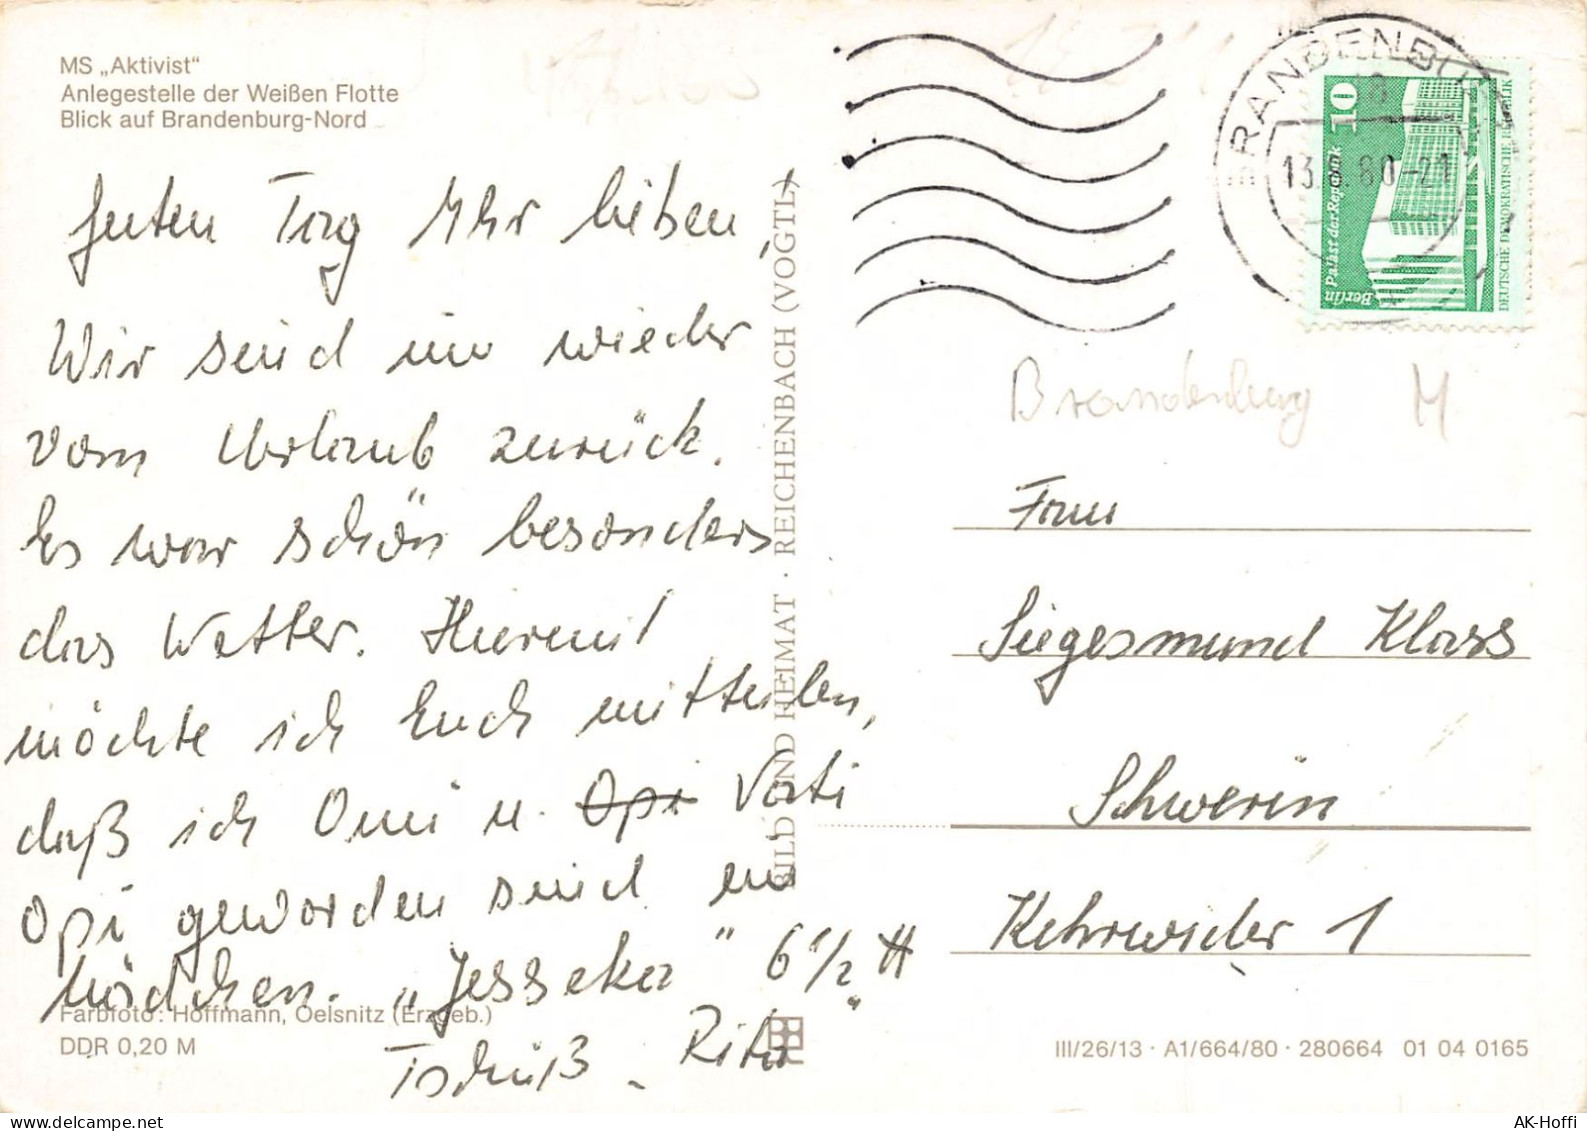 MS „Aktivist“
Anlegestelle der Weißen Flotte
Blick auf Brandenburg-Nord
Guten Tag Ihr lieben,
Wir sind nun wieder
vom Urlaub zurück.
Es war schön besonders
das Wetter. Hiermit
möchte ich Euch mitteilen,
daß ich Omi u. Opi Vati
Opi geworden sind ein
Mädchen. „Jesseka“ 6 1/2 H
Tschüß. Rita
Farbfoto: Hoffmann, Oelsnitz (Erzgeb.)
DDR 0,20 M
BILD UND HEIMAT · REICHENBACH (VOGTL)
BRANDENBURG
13. 8. 80-21
10
Palast der Republik
Berlin
DEUTSCHE DEMOKRATISCHE REPUBLIK
Brandenburg M
Frau
Siegesmund Klass
Schwerin
Kehrwieder 1
III/26/13 · A1/664/80 · 280664 01 04 0165
AK-Hoffi